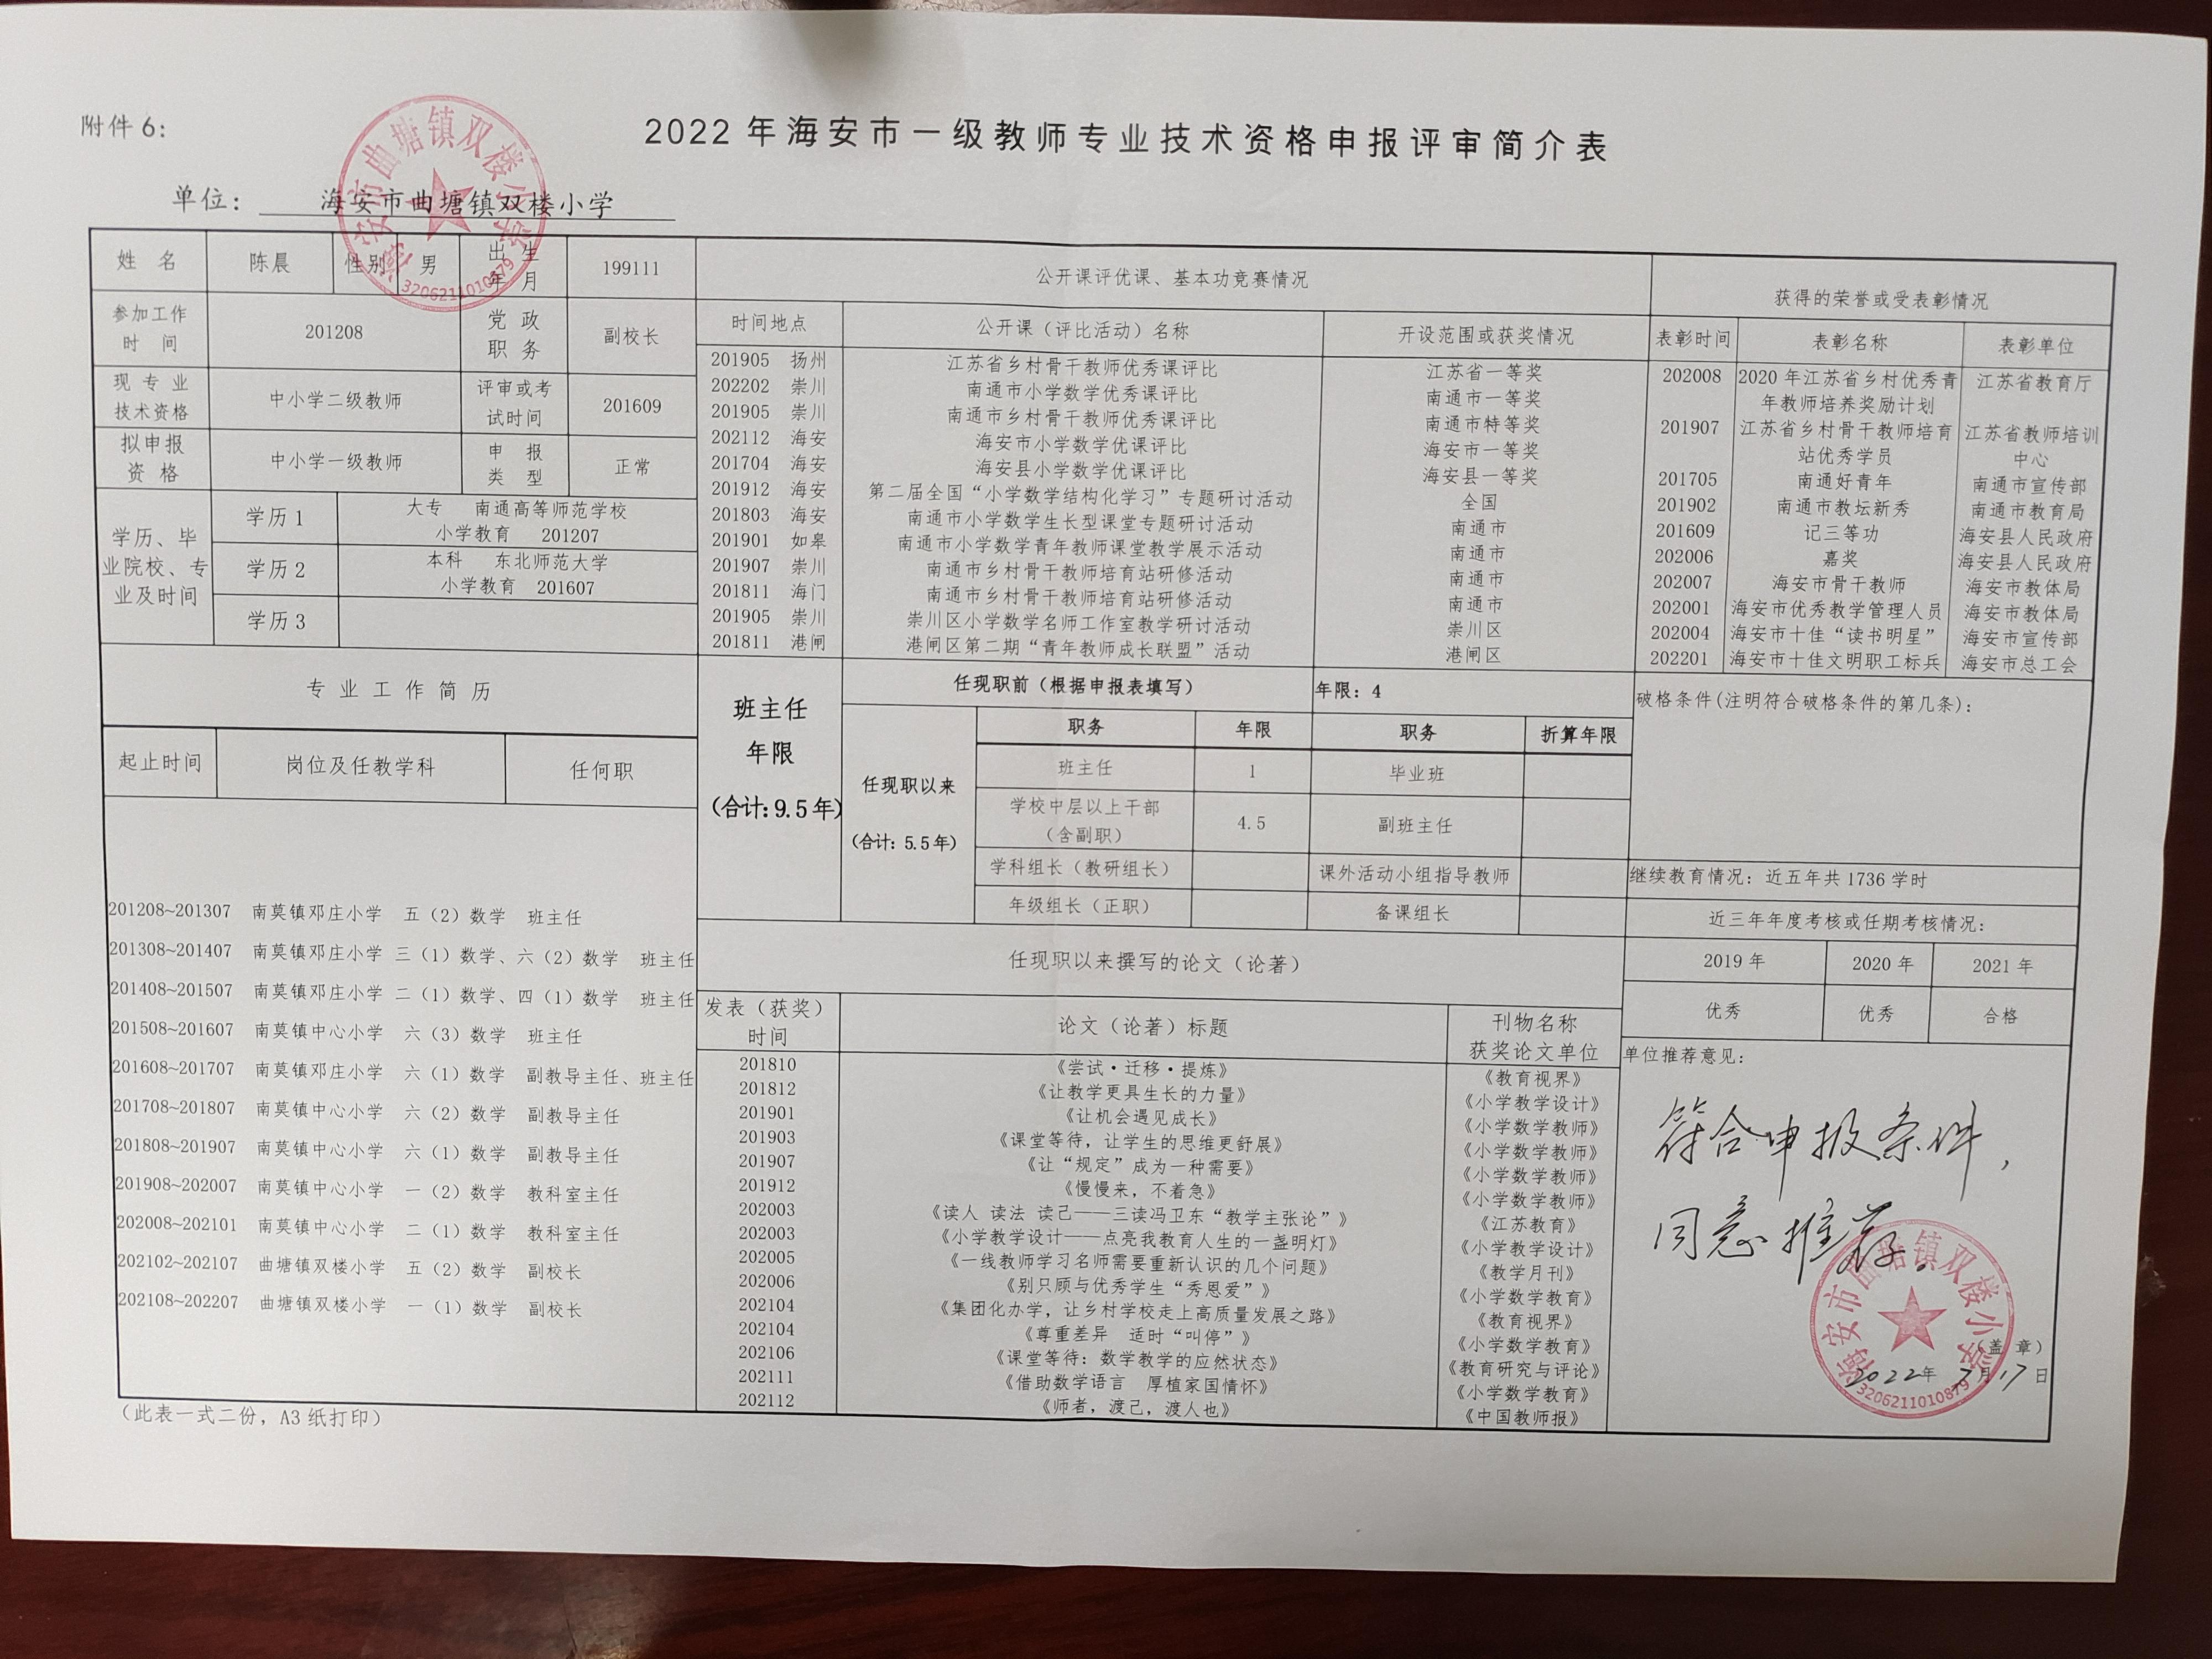 附件 6：
2022 年海安市一级教师专业技术资格申报评审简介表
单位： 海安市曲塘镇双楼小学
海安市曲塘镇双楼小学
3206211010879
姓 名 陈晨 性别 男 出 生 年 月 199111
参加工作时 间 201208 党 政 职 务 副校长
现 专 业 技术资格 中小学二级教师 评审或考试时间 201609
拟申报资 格 中小学一级教师 申 报 类 型 正常
学历、毕业院校、专业及时间
学历 1 大专 南通高等师范学校
小学教育 201207
学历 2 本科 东北师范大学
小学教育 201607
学历 3
专 业 工 作 简 历
起止时间 岗位及任教学科 任何职
201208~201307 南莫镇邓庄小学 五（2）数学 班主任
201308~201407 南莫镇邓庄小学 三（1）数学、六（2）数学 班主任
201408~201507 南莫镇邓庄小学 二（1）数学、四（1）数学 班主任
201508~201607 南莫镇中心小学 六（3）数学 班主任
201608~201707 南莫镇邓庄小学 六（1）数学 副教导主任、班主任
201708~201807 南莫镇中心小学 六（2）数学 副教导主任
201808~201907 南莫镇中心小学 六（1）数学 副教导主任
201908~202007 南莫镇中心小学 一（2）数学 教科室主任
202008~202101 南莫镇中心小学 二（1）数学 教科室主任
202102~202107 曲塘镇双楼小学 五（2）数学 副校长
202108~202207 曲塘镇双楼小学 一（1）数学 副校长
公开课评优课、基本功竞赛情况
时间地点 公开课（评比活动）名称 开设范围或获奖情况
201905 扬州 江苏省乡村骨干教师优秀课评比 江苏省一等奖
202202 崇川 南通市小学数学优秀课评比 南通市一等奖
201905 崇川 南通市乡村骨干教师优秀课评比 南通市特等奖
202112 海安 海安市小学数学优课评比 海安市一等奖
201704 海安 海安县小学数学优课评比 海安县一等奖
201912 海安 第二届全国“小学数学结构化学习”专题研讨活动 全国
201803 海安 南通市小学数学生长型课堂专题研讨活动 南通市
201901 如皋 南通市小学数学青年教师课堂教学展示活动 南通市
201907 崇川 南通市乡村骨干教师培育站研修活动 南通市
201811 海门 南通市乡村骨干教师培育站研修活动 南通市
201905 崇川 崇川区小学数学名师工作室教学研讨活动 崇川区
201811 港闸 港闸区第二期“青年教师成长联盟”活动 港闸区
班主任
年限
（合计：9.5 年）
任现职前（根据申报表填写） 年限：4
任现职以来
（合计：5.5 年）
职务 年限 职务 折算年限
班主任 1 毕业班
学校中层以上干部（含副职） 4.5 副班主任
学科组长（教研组长） 课外活动小组指导教师
年级组长（正职） 备课组长
任现职以来撰写的论文（论著）
发表（获奖）时间 论文（论著）标题 刊物名称 获奖论文单位
201810 《尝试·迁移·提炼》 《教育视界》
201812 《让教学更具生长的力量》 《小学教学设计》
201901 《让机会遇见成长》 《小学数学教师》
201903 《课堂等待，让学生的思维更舒展》 《小学数学教师》
201907 《让“规定”成为一种需要》 《小学数学教师》
201912 《慢慢来，不着急》 《小学数学教师》
202003 《读人 读法 读己——三读冯卫东“教学主张论”》 《江苏教育》
202003 《小学教学设计——点亮我教育人生的一盏明灯》 《小学教学设计》
202005 《一线教师学习名师需要重新认识的几个问题》 《教学月刊》
202006 《别只顾与优秀学生“秀恩爱”》 《小学数学教育》
202104 《集团化办学，让乡村学校走上高质量发展之路》 《教育视界》
202104 《尊重差异 适时“叫停”》 《小学数学教育》
202106 《课堂等待：数学教学的应然状态》 《教育研究与评论》
202111 《借助数学语言 厚植家国情怀》 《小学数学教育》
202112 《师者，渡己，渡人也》 《中国教师报》
获得的荣誉或受表彰情况
表彰时间 表彰名称 表彰单位
202008 2020 年江苏省乡村优秀青年教师培养奖励计划 江苏省教育厅
201907 江苏省乡村骨干教师培育站优秀学员 江苏省教师培训中心
201705 南通好青年 南通市宣传部
201902 南通市教坛新秀 南通市教育局
201609 记三等功 海安县人民政府
202006 嘉奖 海安县人民政府
202007 海安市骨干教师 海安市教体局
202001 海安市优秀教学管理人员 海安市教体局
202004 海安市十佳“读书明星” 海安市宣传部
202201 海安市十佳文明职工标兵 海安市总工会
破格条件(注明符合破格条件的第几条)：
继续教育情况：近五年共 1736 学时
近三年年度考核或任期考核情况：
2019 年 2020 年 2021 年
优秀 优秀 合格
单位推荐意见：
符合申报条件，
同意推荐。
海安市曲塘镇双楼小学
（盖 章）
2022年 7月 17日
3206211010879
（此表一式二份，A3 纸打印）